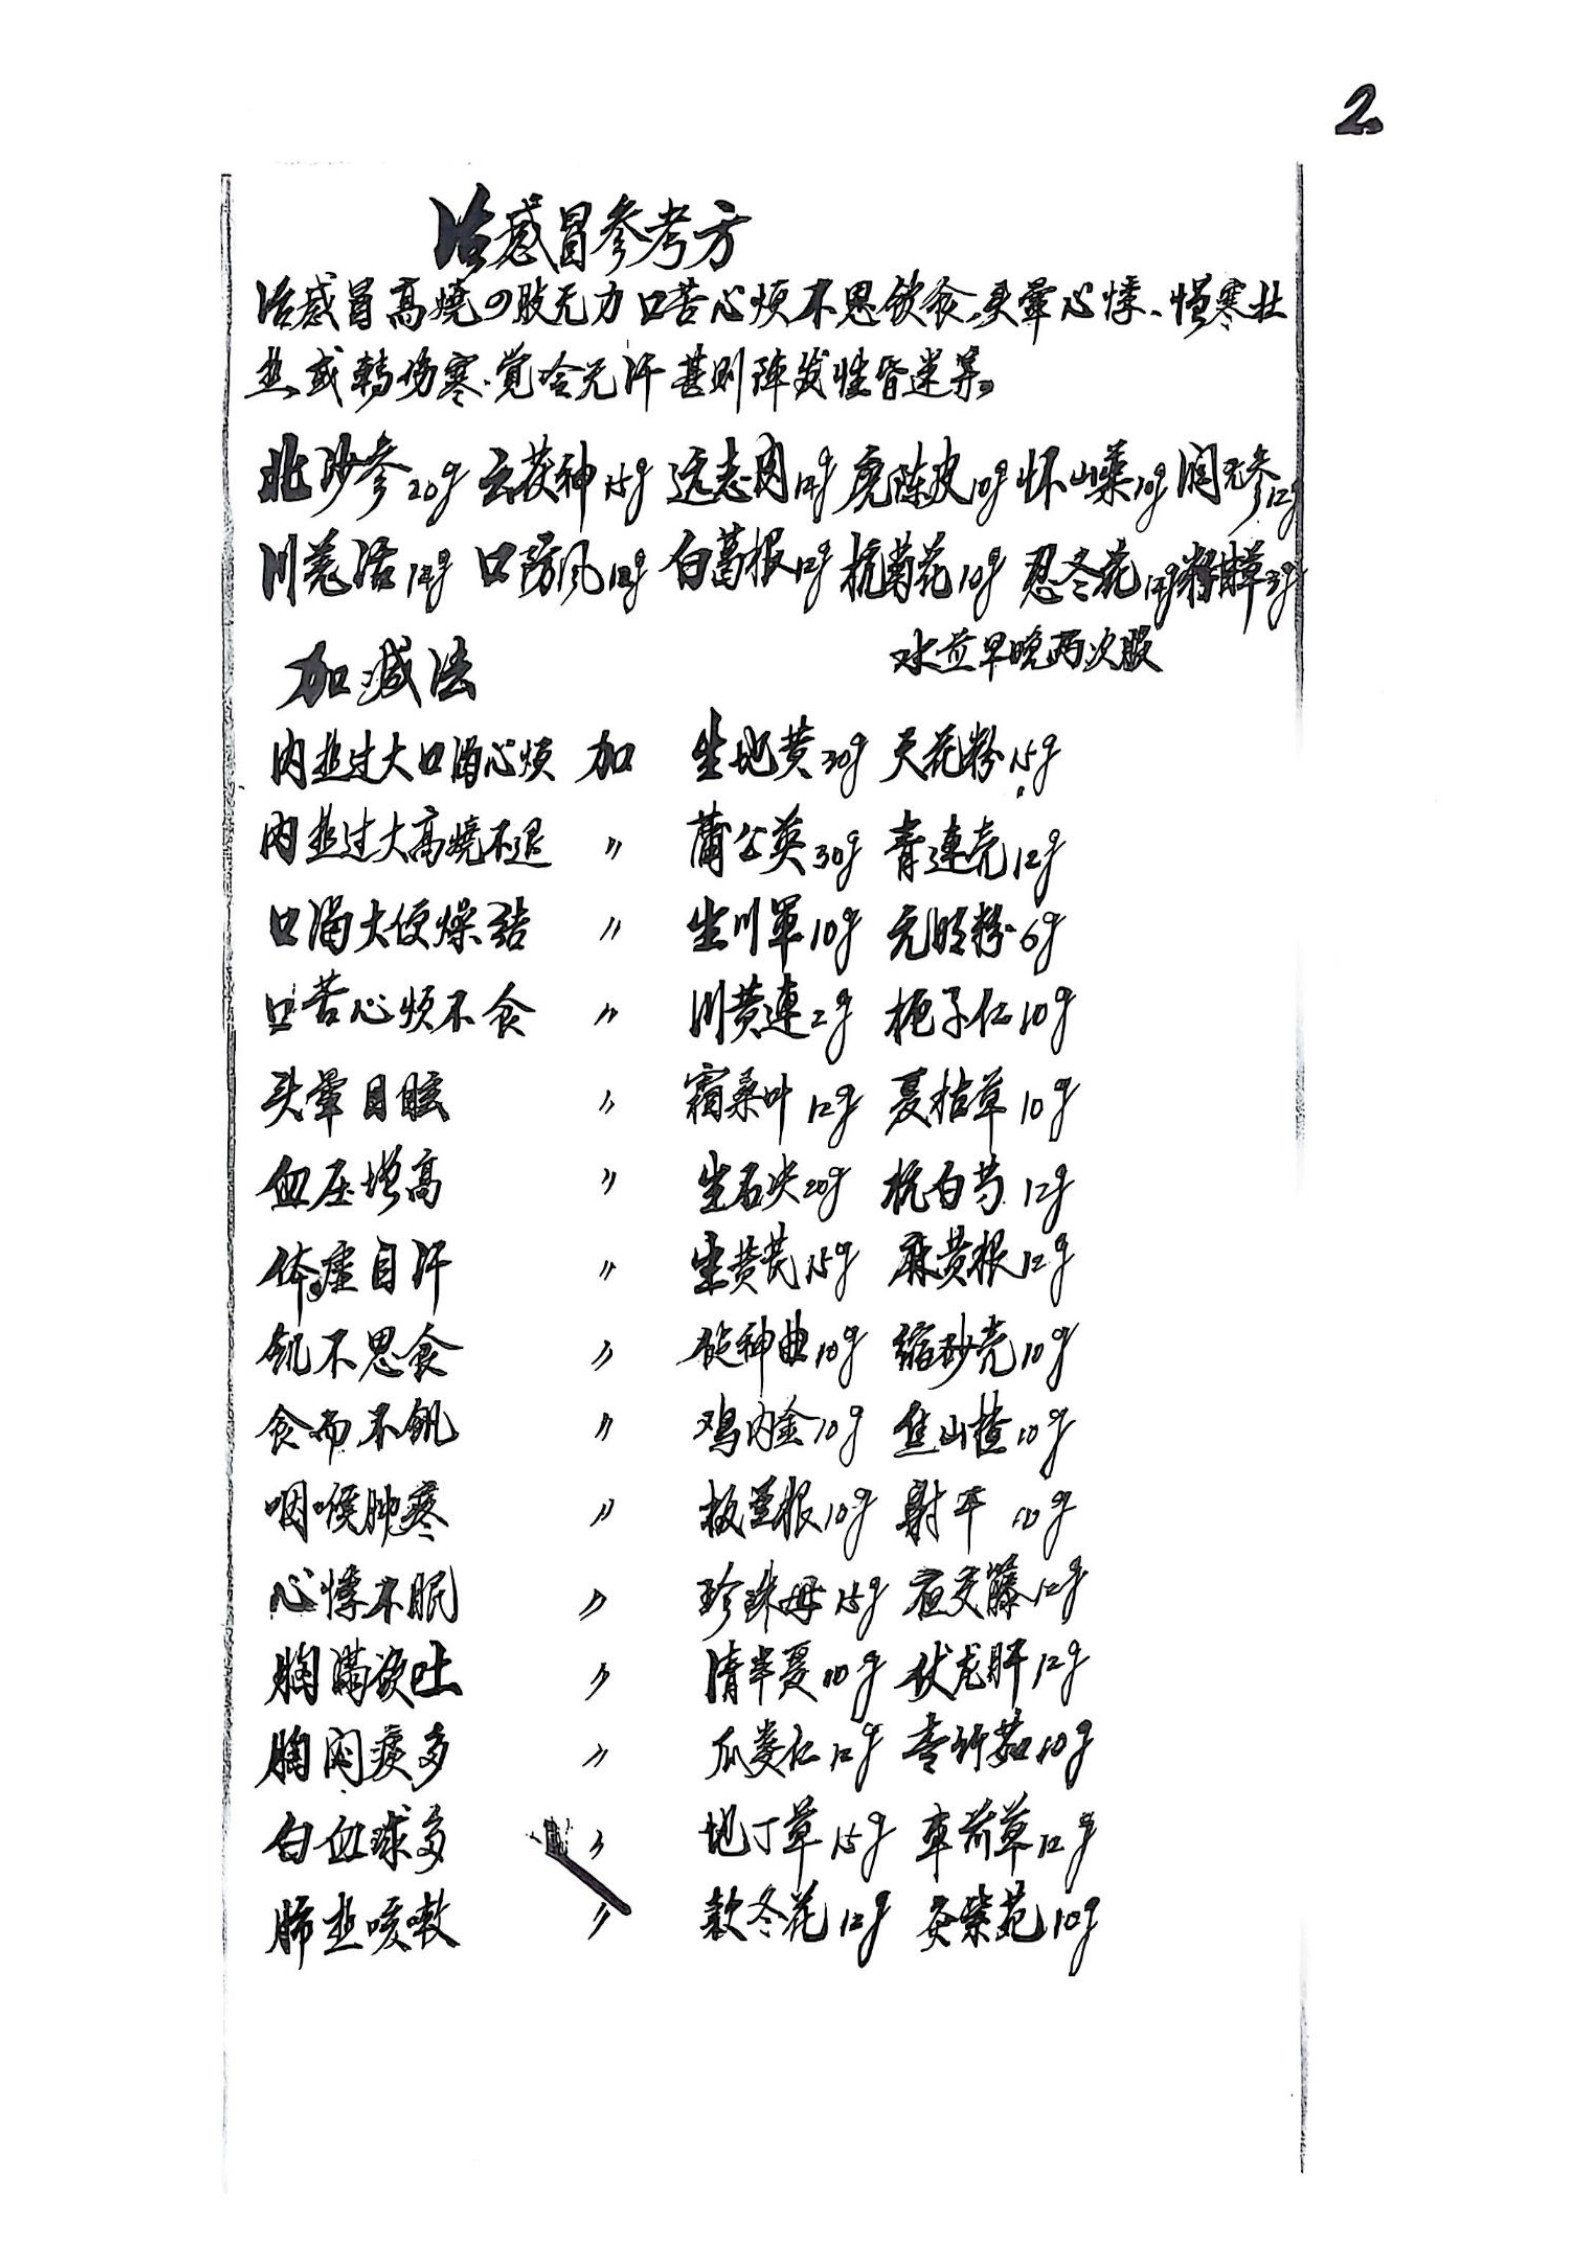 2
治感冒参考方
治感冒高燒四肢无力口苦心烦不思饮食、头晕心悸、憎寒壮
热或转伤寒、觉冷无汗甚则阵发性昏迷等。
北沙参20g 云茯神15g 远志肉12g 广陈皮10g 怀山药10g 润元参12g
川羌活12g 口防风10g 白葛根12g 杭菊花10g 忍冬花12g 粉甘草3g
水煎早晚两次服
加减法
内热过大口渴心烦 加 生地黄30g 天花粉15g
内热过大高燒不退 〃 蒲公英30g 青連壳12g
口渴大便燥结 〃 生川軍10g 元明粉6g
口苦心烦不食 〃 川黄連2g 栀子仁10g
头晕目眩 〃 霜桑叶12g 夏枯草10g
血压增高 〃 生石决20g 杭白芍12g
体虚自汗 〃 生黄芪15g 麻黄根12g
飢不思食 〃 神曲10g 缩砂壳10g
食而不飢 〃 鸡内金10g 焦山楂10g
咽喉肿疼 〃 板兰根10g 射干10g
心悸不眠 〃 珍珠母15g 夜交藤12g
胸满欲吐 〃 清半夏10g 伏龙肝12g
胸闷痰多 〃 瓜蒌仁12g 青竹茹10g
白血球多 〃 地丁草15g 車前草12g
肺热咳嗽 〃 款冬花12g 炙紫苑10g